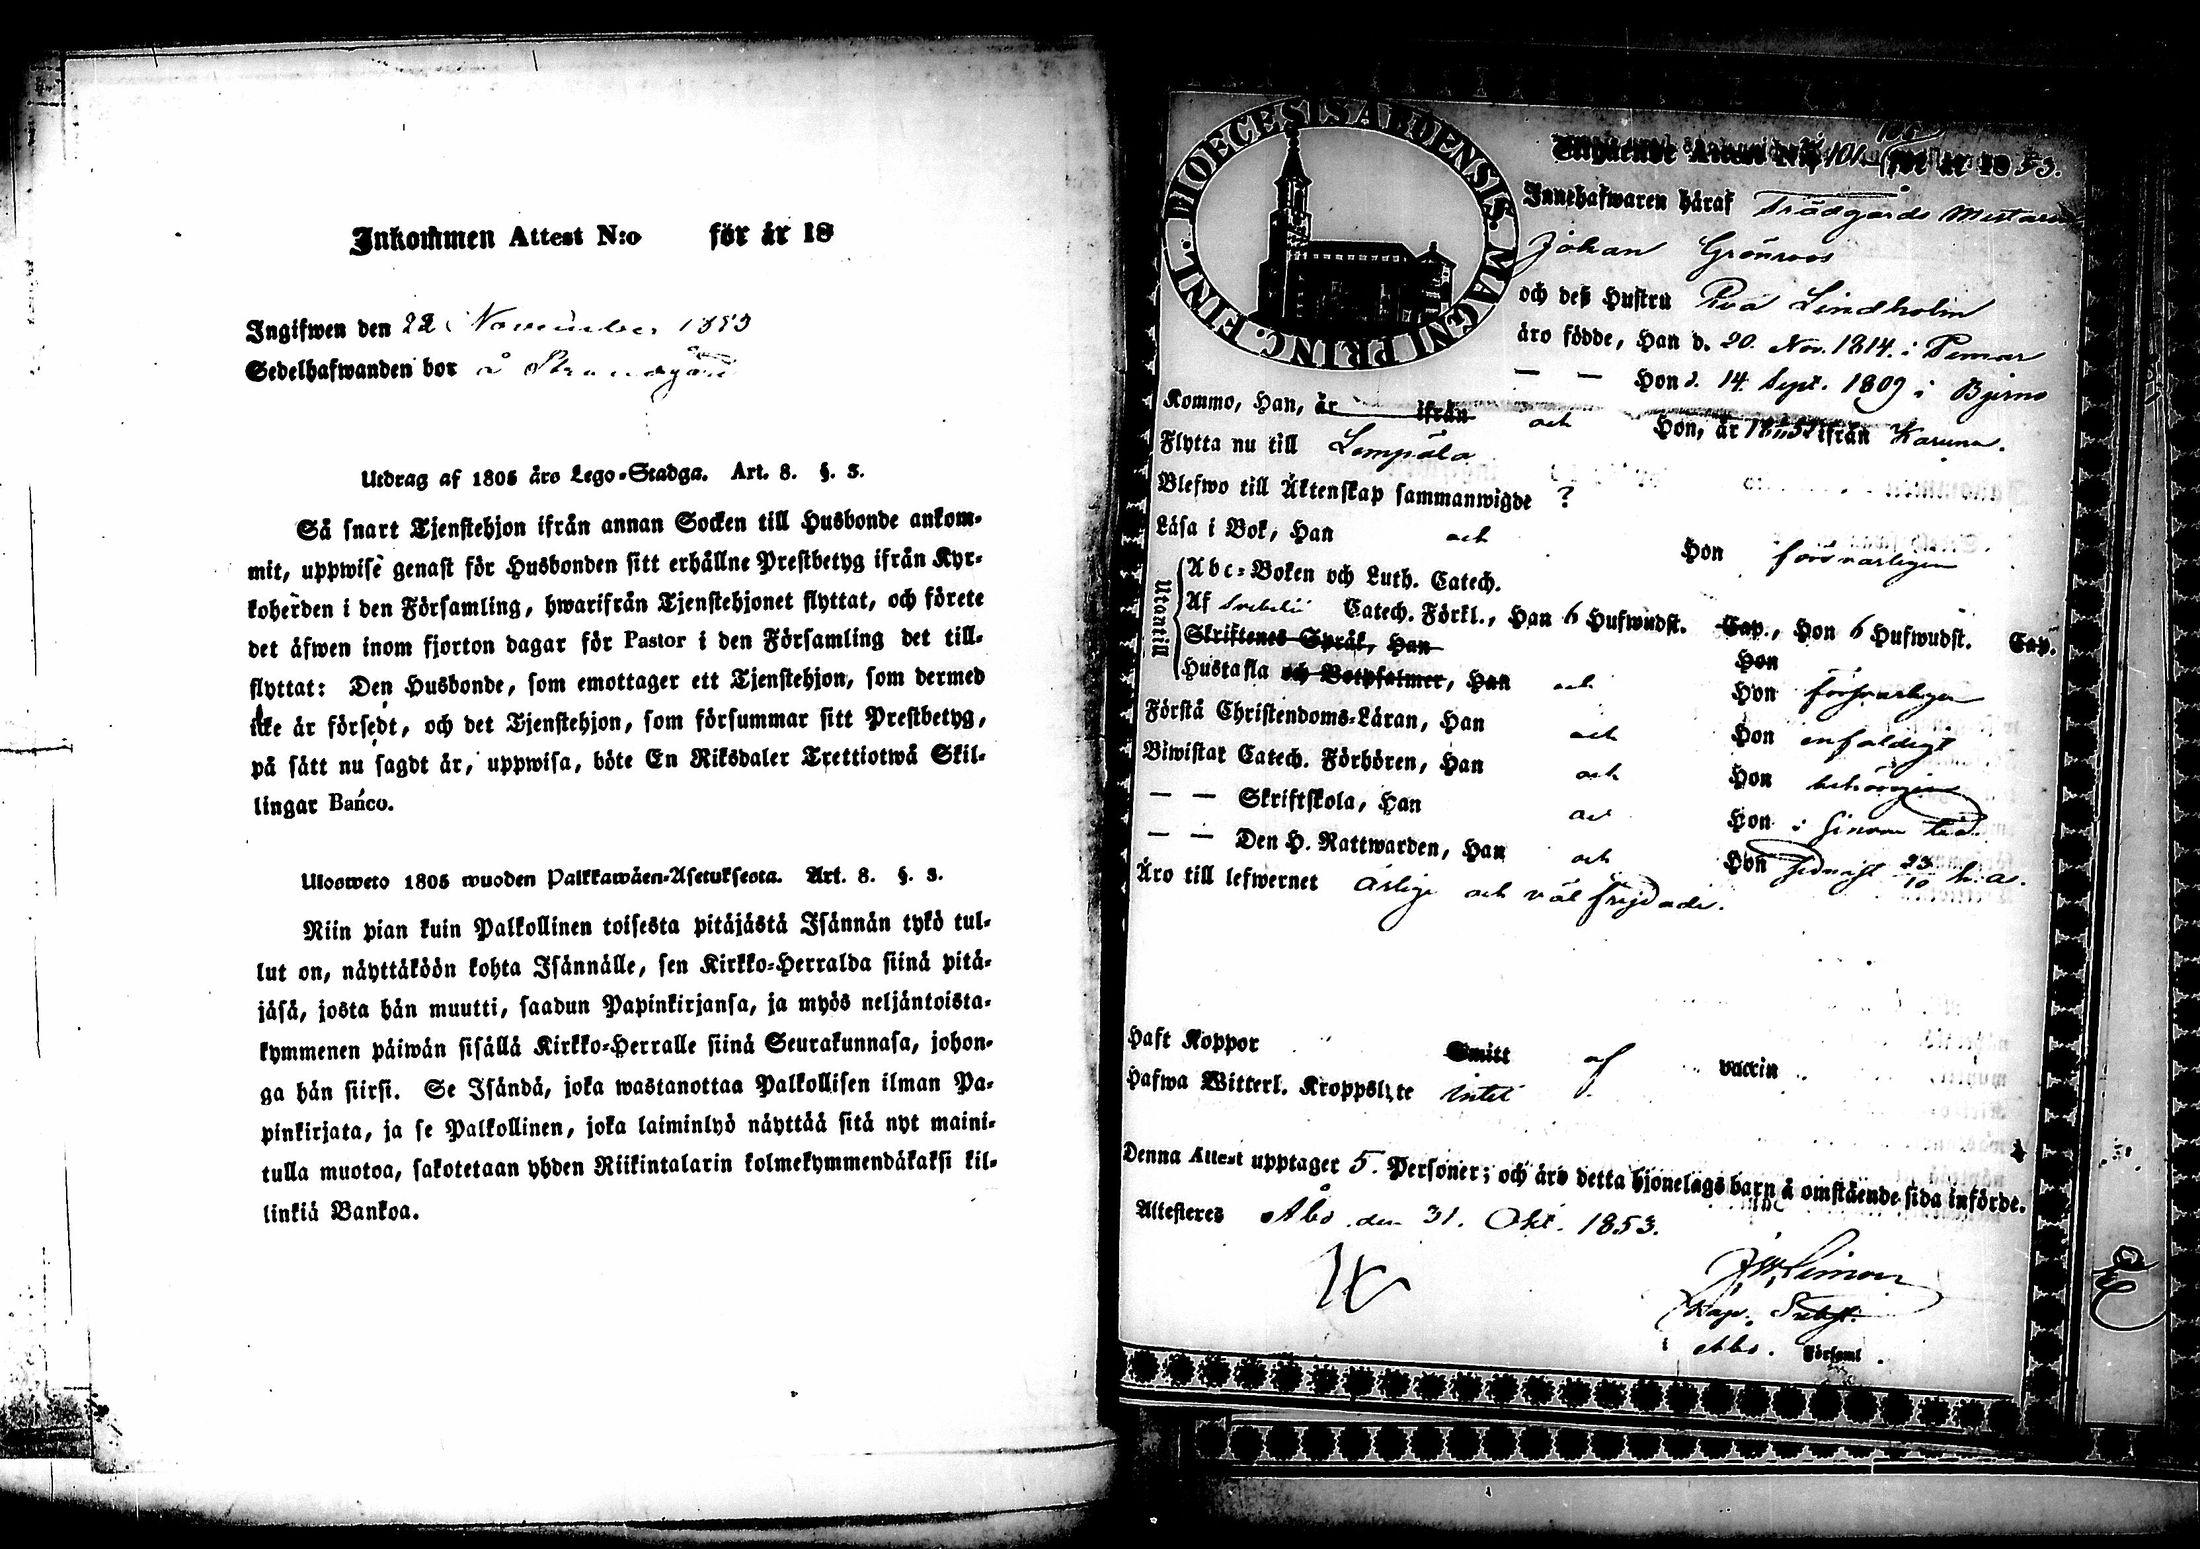 Inkommen Attest N:o för år 18
Ingifwen den 22 November 1853
Sedelhafwanden bor å Strandgård
Utdrag af 1805 års Lego-Stadga. Art. 8. §. 3.
Så snart Tjenstehjon ifrån annan Socken till Husbonde ankom-
mit, uppwise genast för Husbonden sitt erhållne Prestbetyg ifrån Kyr-
koherden i den Församling, hwarifrån Tjenstehjonet flyttat, och förete
det äfwen inom fjorton dagar för Pastor i den Församling det till-
flyttat: Den Husbonde, som emottager ett Tjenstehjon, som dermed
icke är försedt, och det Tjenstehjon, som försummar sitt Prestbetyg,
på sätt nu sagdt är, uppwisa, böte En Riksdaler Trettiotwå Skil-
lingar Banco.
Ulosweto 1805 wuoden Palkkawäen-Asetuksesta. Art. 8. §. 3.
Niin pian kuin Palkollinen toisesta pitäjästä Isännän tykö tul-
lut on, näyttäköön kohta Isännälle, sen Kirkko-Herralda siinä pitä-
jäsä, josta hän muutti, saadun Papinkirjansa, ja myös neljäntoista-
kymmenen päiwän sisällä Kirkko-Herralle siinä Seurakunnasa, johon-
ga hän siirsi. Se Isändä, joka wastanottaa Palkollisen ilman Pa-
pinkirjata, ja se Palkollinen, joka laiminlyö näyttää sitä nyt maini-
tulla muotoa, sakotetaan yhden Riikintalarin kolmekymmendäkaksi kil-
linkiä Bankoa.
FINL. DIOECESIS ABOENSIS. MAGNI PRINC.
Utgående Attest N:o 101 för år 1853.
Innehafwaren häraf Trädgårds Mästaren
Johan Grönroos
och deß Hustru Eva Lindholm
äro födde, Han d. 20. Nov. 1814. i Pemar
— — Hon d. 14 Sept. 1809 i Bjerno
Kommo, Han, år ifrån och Hon, år 1851 ifrån Karuna.
Flytta nu till Lempäla
Blefwo till Äktenskap sammanwigde ?
Läsa i Bok, Han och Hon försvarligen
Utantill
Abc-Boken och Luth. Catech.
Af Svebelii Catech. Förkl., Han 6 Hufwudst. Cap., Hon 6 Hufwudst. Cap.
Skriftenes Språk, Han Hon
Hustafla och Botpsalmer, Han och Hon försvarligen
Förstå Christendoms-Läran, Han och Hon enfaldigt
Biwistat Catech. Förhören, Han och Hon behörigen
— — Skriftskola, Han och Hon i sinom tid.
— — Den H. Nattwarden, Han och Hon sednast 23/10 h. a.
Äro till lefwernet ärlige och väl frejdade.
Haft Koppor Smitt af vaccin
Hafwa Witterl. Kroppslyte intet
Denna Attest upptager 5. Personer; och äro detta hjonelags barn å omstående sida införde.
Attesteras Åbo den 31. Okt. 1853.
Kap. Subst.
i Åbo. Församl.